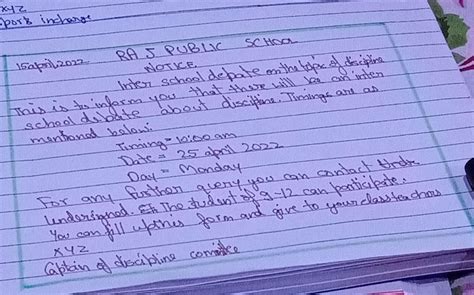 xyz
Sports incharge
RAJ PUBLIC SCHOOL
15april,2022
NOTICE
Inter school debate on the topic of discipline
This is to inform you that there will be an inter
school debate about discipline. Timings are as
mentioned below:
Timing = 10:00 am
Date = 25 april 2022
Day = Monday
For any further query you can contact
undersigned. The student of 9-12 can participate.
You can fill up this form and give to your class teachers
xyz
Captain of discipline